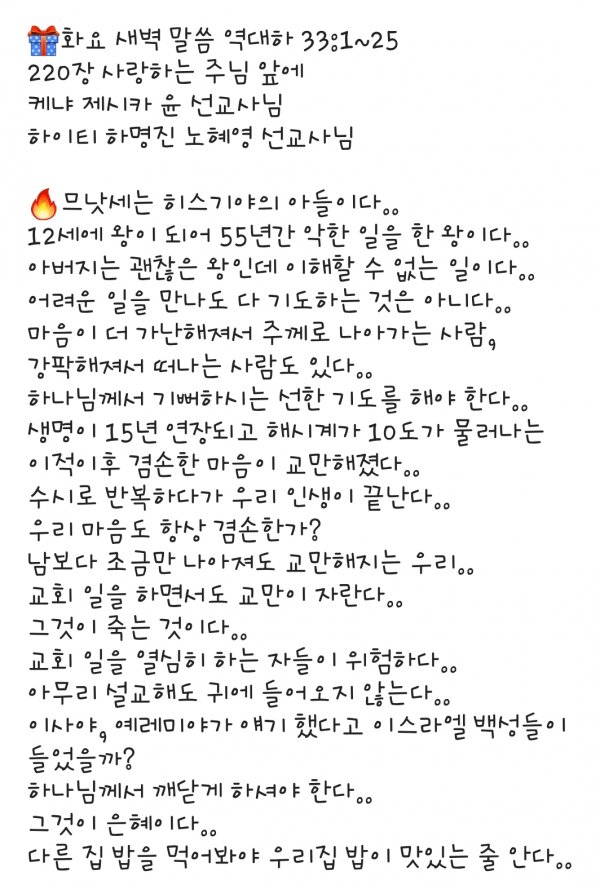 🎁화요 새벽 말씀 역대하 33:1~25
220장 사랑하는 주님 앞에
케냐 제시카 윤 선교사님
하이티 하명진 노혜영 선교사님
🔥므낫세는 히스기야의 아들이다..
12세에 왕이 되어 55년간 악한 일을 한 왕이다..
아버지는 괜찮은 왕인데 이해할 수 없는 일이다..
어려운 일을 만나도 다 기도하는 것은 아니다..
마음이 더 가난해져서 주께로 나아가는 사람,
강팍해져서 떠나는 사람도 있다..
하나님께서 기뻐하시는 선한 기도를 해야 한다..
생명이 15년 연장되고 해시계가 10도가 물러나는
이적이후 겸손한 마음이 교만해졌다..
수시로 반복하다가 우리 인생이 끝난다..
우리 마음도 항상 겸손한가?
남보다 조금만 나아져도 교만해지는 우리..
교회 일을 하면서도 교만이 자란다..
그것이 죽는 것이다..
교회 일을 열심히 하는 자들이 위험하다..
아무리 설교해도 귀에 들어오지 않는다..
이사야, 예레미야가 얘기 했다고 이스라엘 백성들이
들었을까?
하나님께서 깨닫게 하셔야 한다..
그것이 은혜이다..
다른 집 밥을 먹어봐야 우리집 밥이 맛있는 줄 안다..